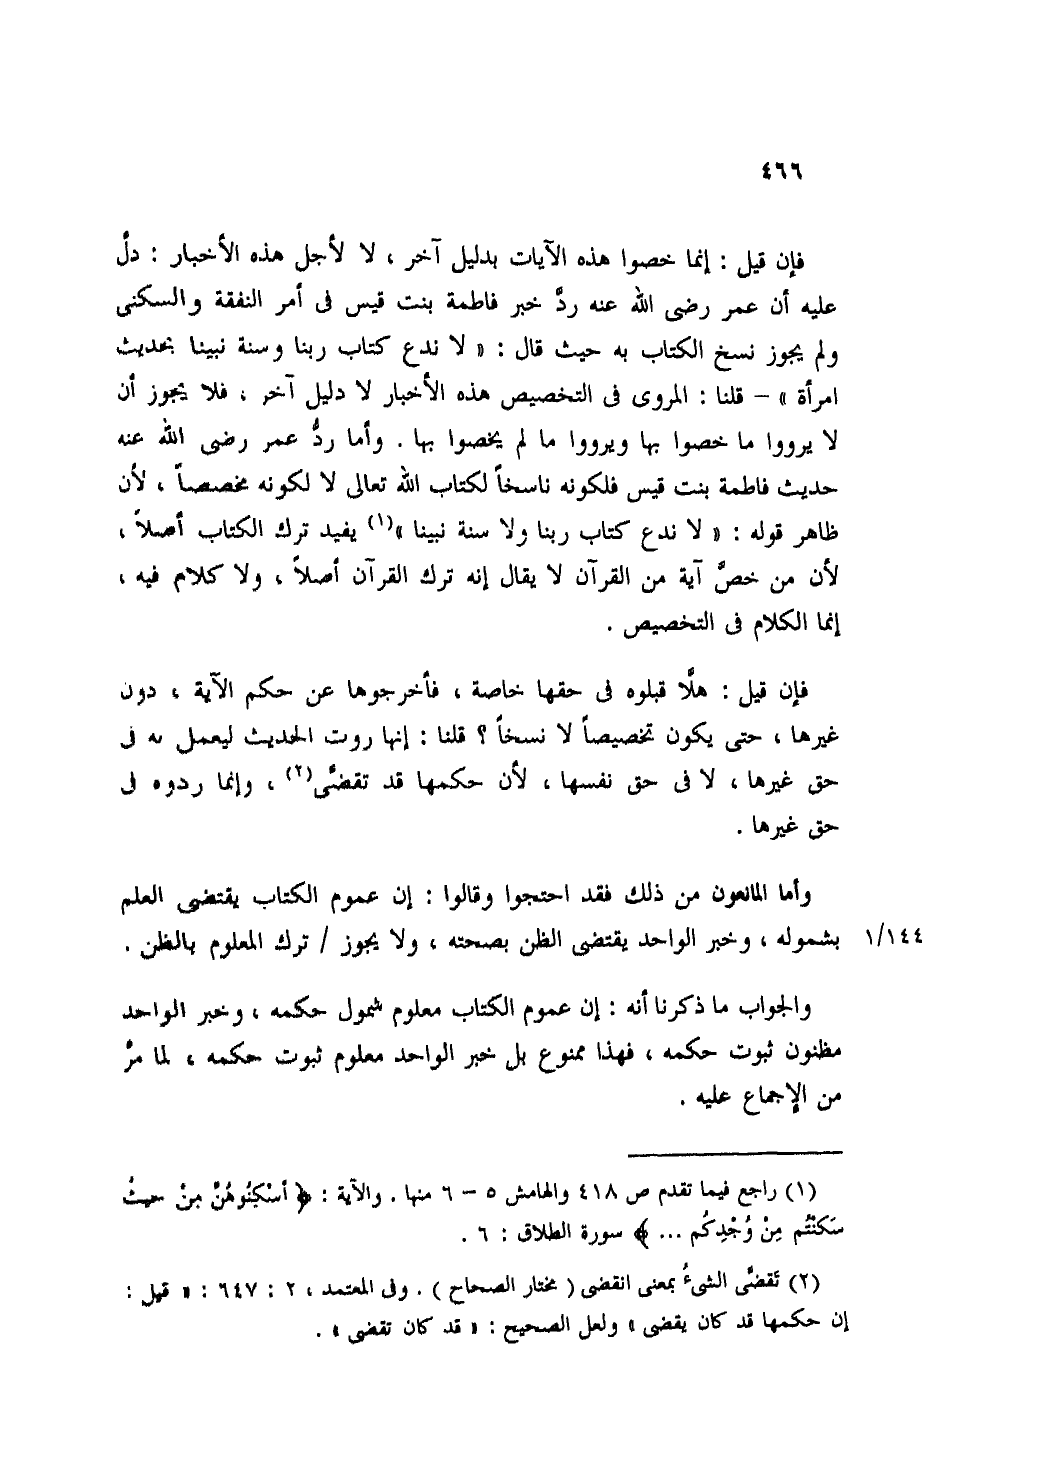 ٤٦٦
فإن قيل : إنما خصوا هذه الآيات بدليل آخر ، لا لأجل هذه الأخبار : دلَّ
عليه أن عمر رضى الله عنه ردَّ خبر فاطمة بنت قيس فى أمر النفقة والسكنى
ولم يجوز نسخ الكتاب به حيث قال : « لا ندع كتاب ربنا وسنة نبينا بحديث
امرأة » – قلنا : المروى فى التخصيص هذه الأخبار لا دليل آخر ، فلا يجوز أن
لا يرووا ما خصوا بها ويرووا ما لم يخصوا بها . وأما ردُّ عمر رضى الله عنه
حديث فاطمة بنت قيس فلكونه ناسخاً لكتاب الله تعالى لا لكونه مخصصاً ، لأن
ظاهر قوله : « لا ندع كتاب ربنا ولا سنة نبينا »(١) يفيد ترك الكتاب أصلاً ،
لأن من خصَّ آية من القرآن لا يقال إنه ترك القرآن أصلاً ، ولا كلام فيه ،
إنما الكلام فى التخصيص .
فإن قيل : هلَّا قبلوه فى حقها خاصة ، فأخرجوها عن حكم الآية ، دون
غيرها ، حتى يكون تخصيصاً لا نسخاً ؟ قلنا : إنها روت الحديث ليعمل به فى
حق غيرها ، لا فى حق نفسها ، لأن حكمها قد تقضَّى(٢) ، وإنما ردوه فى
حق غيرها .
وأما المانعون من ذلك فقد احتجوا وقالوا : إن عموم الكتاب يقتضى العلم
١/١٤٤ بشموله ، وخبر الواحد يقتضى الظن بصحته ، ولا يجوز / ترك المعلوم بالظن .
والجواب ما ذكرنا أنه : إن عموم الكتاب معلوم شمول حكمه ، وخبر الواحد
مظنون ثبوت حكمه ، فهذا ممنوع بل خبر الواحد معلوم ثبوت حكمه ، لما مرَّ
من الإجماع عليه .
(١) راجع فيما تقدم ص ٤١٨ والهامش ٥ – ٦ منها . والآية : ﴿ أَسْكِنُوهُنَّ مِنْ حَيْثُ
سَكَنْتُم مِنْ وُجْدِكُم ... ﴾ سورة الطلاق : ٦ .
(٢) تَقضَّى الشىءُ بمعنى انقضى ( مختار الصحاح ) . وفى المعتمد ، ٢ : ٦٤٧ : « قيل :
إن حكمها قد كان يقضى » ولعل الصحيح : « قد كان تقضى » .